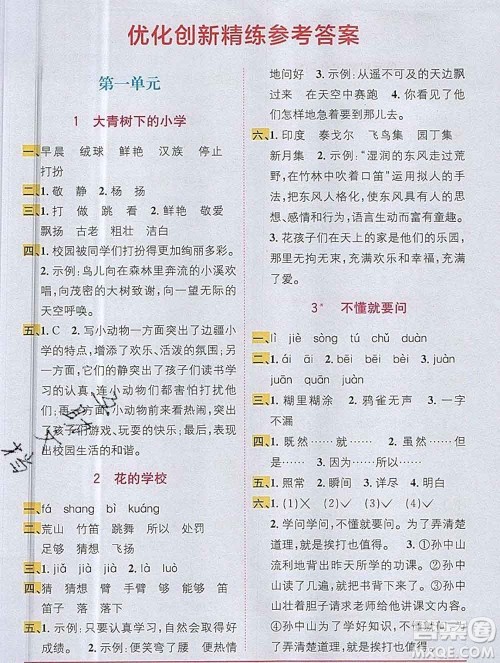 优化创新精练参考答案
第一单元
1 大青树下的小学
一、早晨 绒球 鲜艳 汉族 停止
打扮
二、1. 敬 静 2. 杨 扬
三、1. 打 做 跳 看 2. 鲜艳 敬爱
飘扬 古老 粗壮 洁白
四、1. 校园被同学们打扮得更加绚丽多彩。
2. 示例:鸟儿向在森林里奔流的小溪欢
唱,向茂密的大树致敬,向明净的
天空呼唤。
五、1. C 2. 写小动物一方面突出了边疆小
学的特点,增添了欢乐、活泼的氛围。另
一方面,用它们的静静突出孩子们
读书的认真,连小动物们都害怕打扰
们;再一方面,小动物来看热闹,突出
孩子们游戏、玩耍的快乐。最终,表现出
校园生活的和谐。
2 花的学校
一、fá shang bì kuáng
二、荒山 竹笛 跳舞 所以 处罚
足够 猜想 飞扬
三、1. jiǎ 2. jià 3. luò 4. là
四、猜 猜想 臂 手臂 够 能够 笛
笛子 落 落下
五、1. 示例:只要认真学习,就会取得好
成绩。 2. 示例:绿绿的 懒懒 热情
地问好 3. 示例:从遥不可及的天边飘
过来 在天空中赛跑 4. 你没看见他
们怎样地急着要到那儿去。
六、1. 印度 泰戈尔 飞鸟集 园丁集
新月集 2. 示例:“湿润的东风走过荒
野,在竹林中吹着口笛”运用拟人的手
法,把东风人格化,使东风具有人的思
想、情感和行为,语言生动而富有童趣。
3. 花孩子们在天上的家是他们的乐园,
那里充满欢乐、充满幸福和无忧无虑,
充满了爱。
3* 不懂就要问
一、lì jiè sòng tú chǔ jué
二、1. ái āi 2. bēi bèi bēi 3. juàn
juān quān juǎn
三、1. 糊里糊涂 2. 鸦雀无声 3. 一字
不漏
四、1. 既然……就…… 2. 虽然……但
是…… 3. 因为……所以……
五、1. 照常 2. 示例:清楚 3. 流利
六、1. (1)✗ (2)✓ (3)✓ (4)✓
2. 学问学问,不懂就要问。为了弄清楚
道理,就是挨打也值得。 3. ①孙中山
流利地背出昨天所学的功课。②孙中山
读了几遍,就把书背下来了。③孙中山
壮着胆子请求老师给他讲讲课文。
4. 学问学问,不懂就要问。为了弄清楚
道理,就是挨打也值得。
答案圈
MXQE.COM